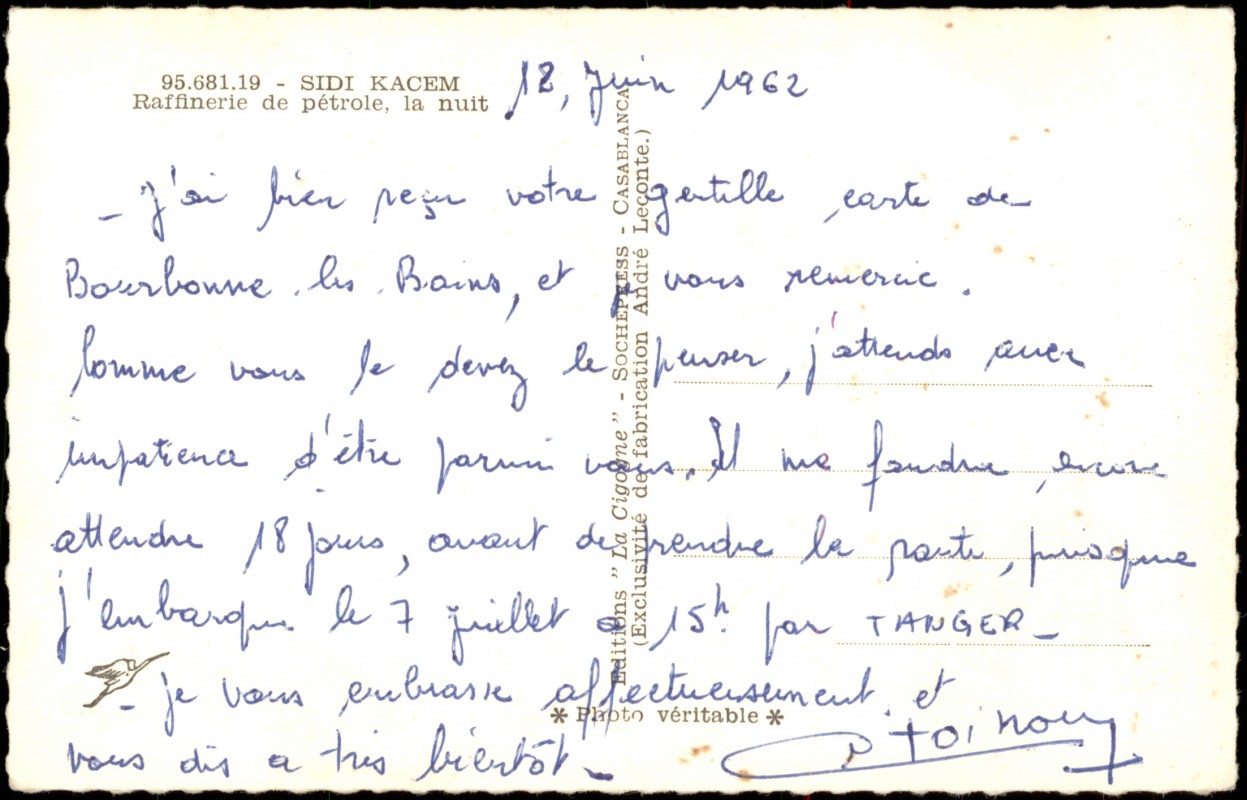 95.681.19 - SIDI KACEM
Raffinerie de pétrole, la nuit
12, Juin 1962
- J'ai bien reçu votre gentille carte de
Bourbonne les Bains, et vous remercie.
Comme vous le devez le penser, j'attends avec
impatience d'être parmi vous. Il me faudra encore
attendre 18 jours, avant de prendre la route, puisque
j'embarque le 7 Juillet à 15h. par TANGER -
- je vous embrasse affectueusement et
vous dis a très bientôt -
Editions "La Cigogne" - SOCHEPRESS - CASABLANCA
(Exclusivité de fabrication André Leconte.)
* Photo véritable *